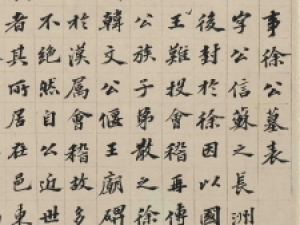 事徐公墓表
字公信蘇之長洲
後封於徐因以國
王難投會稽再傳
公族子弟散之徐
韓文公偃王廟碑
於漢属會稽故多
不絕然自公近世
者其所居在邑東